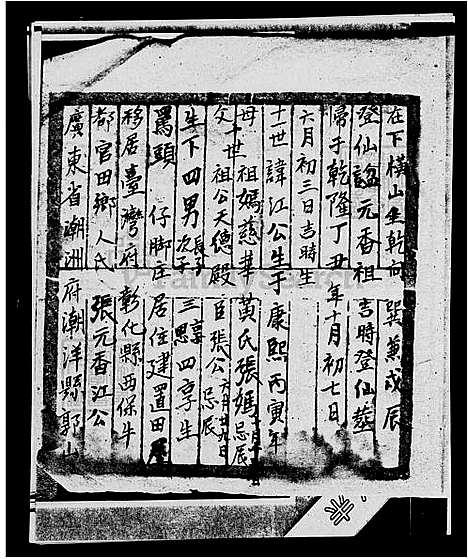 廣東省潮洲府潮洋縣郭山
都官田鄉人氏 張元香江公
移居臺灣府彰化縣西保牛
罵頭仔脚庄居住建置田屋
生下四男 長子 次子 享 三思 四享生
父十世祖公天德殿臣張公六月廿九日忌辰
母十世祖媽慈華黃氏張媽忌辰
十一世諱江公生于康熙丙寅年
六月初三日吉時生
歸于乾隆丁丑年十月初七日
登仙諡元香祖吉時登仙塟
在下橫山坐乾向巽兼戌辰